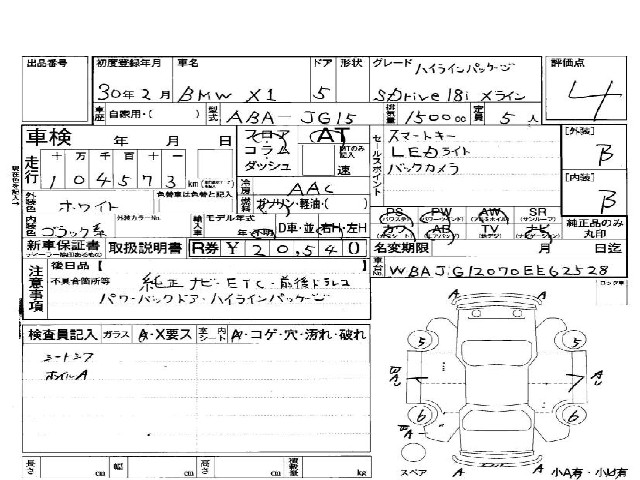 出品番号 初度登録年月 車名 ドア 形状 グレード ハイラインパッケージ 評価点
30年2月 BMW X1 5 SDrive 18i Xライン 4
車歴 自家用・( ) 型式 ABA-JG15 排気量 1500 cc 定員 5 人
車検 年 月 日 フロア AT セールスポイント スマートキー [外装]
走行 十 万 千 百 十 一 コラム LEDライト B
104573 km ダッシュ 速 バックカメラ [内装]
外装色 ホワイト 色替車は色替と記入 冷房 AAC B
燃料 ガソリン・軽油・( ) PS PW AW SR 純正品のみ丸印
内装色 ブラック系 外装カラーNo. 輸入車 モデル年式 年 D車・並 右H・左H カワ AB TV ナビ
新車保証書 取扱説明書 R券 ¥20,540 名変期限 月 日迄
注意事項 後日品【 車台No. WBAJG12070EE62528
不具合箇所等 純正ナビ・ETC・前後ドラレコ ロック車
パワーバックドア・ハイラインパッケージ
検査員記入 ガラス A・X要ス 室内シート A・コゲ・穴・汚れ・破れ
シートコア
ホイルA
A A
5 5
A A
6 6
A
A A
長さ cm 幅 cm 高さ cm 積載量 kg スペア 小A有・小U有